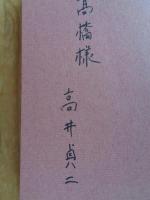 高橋様
高井貞二